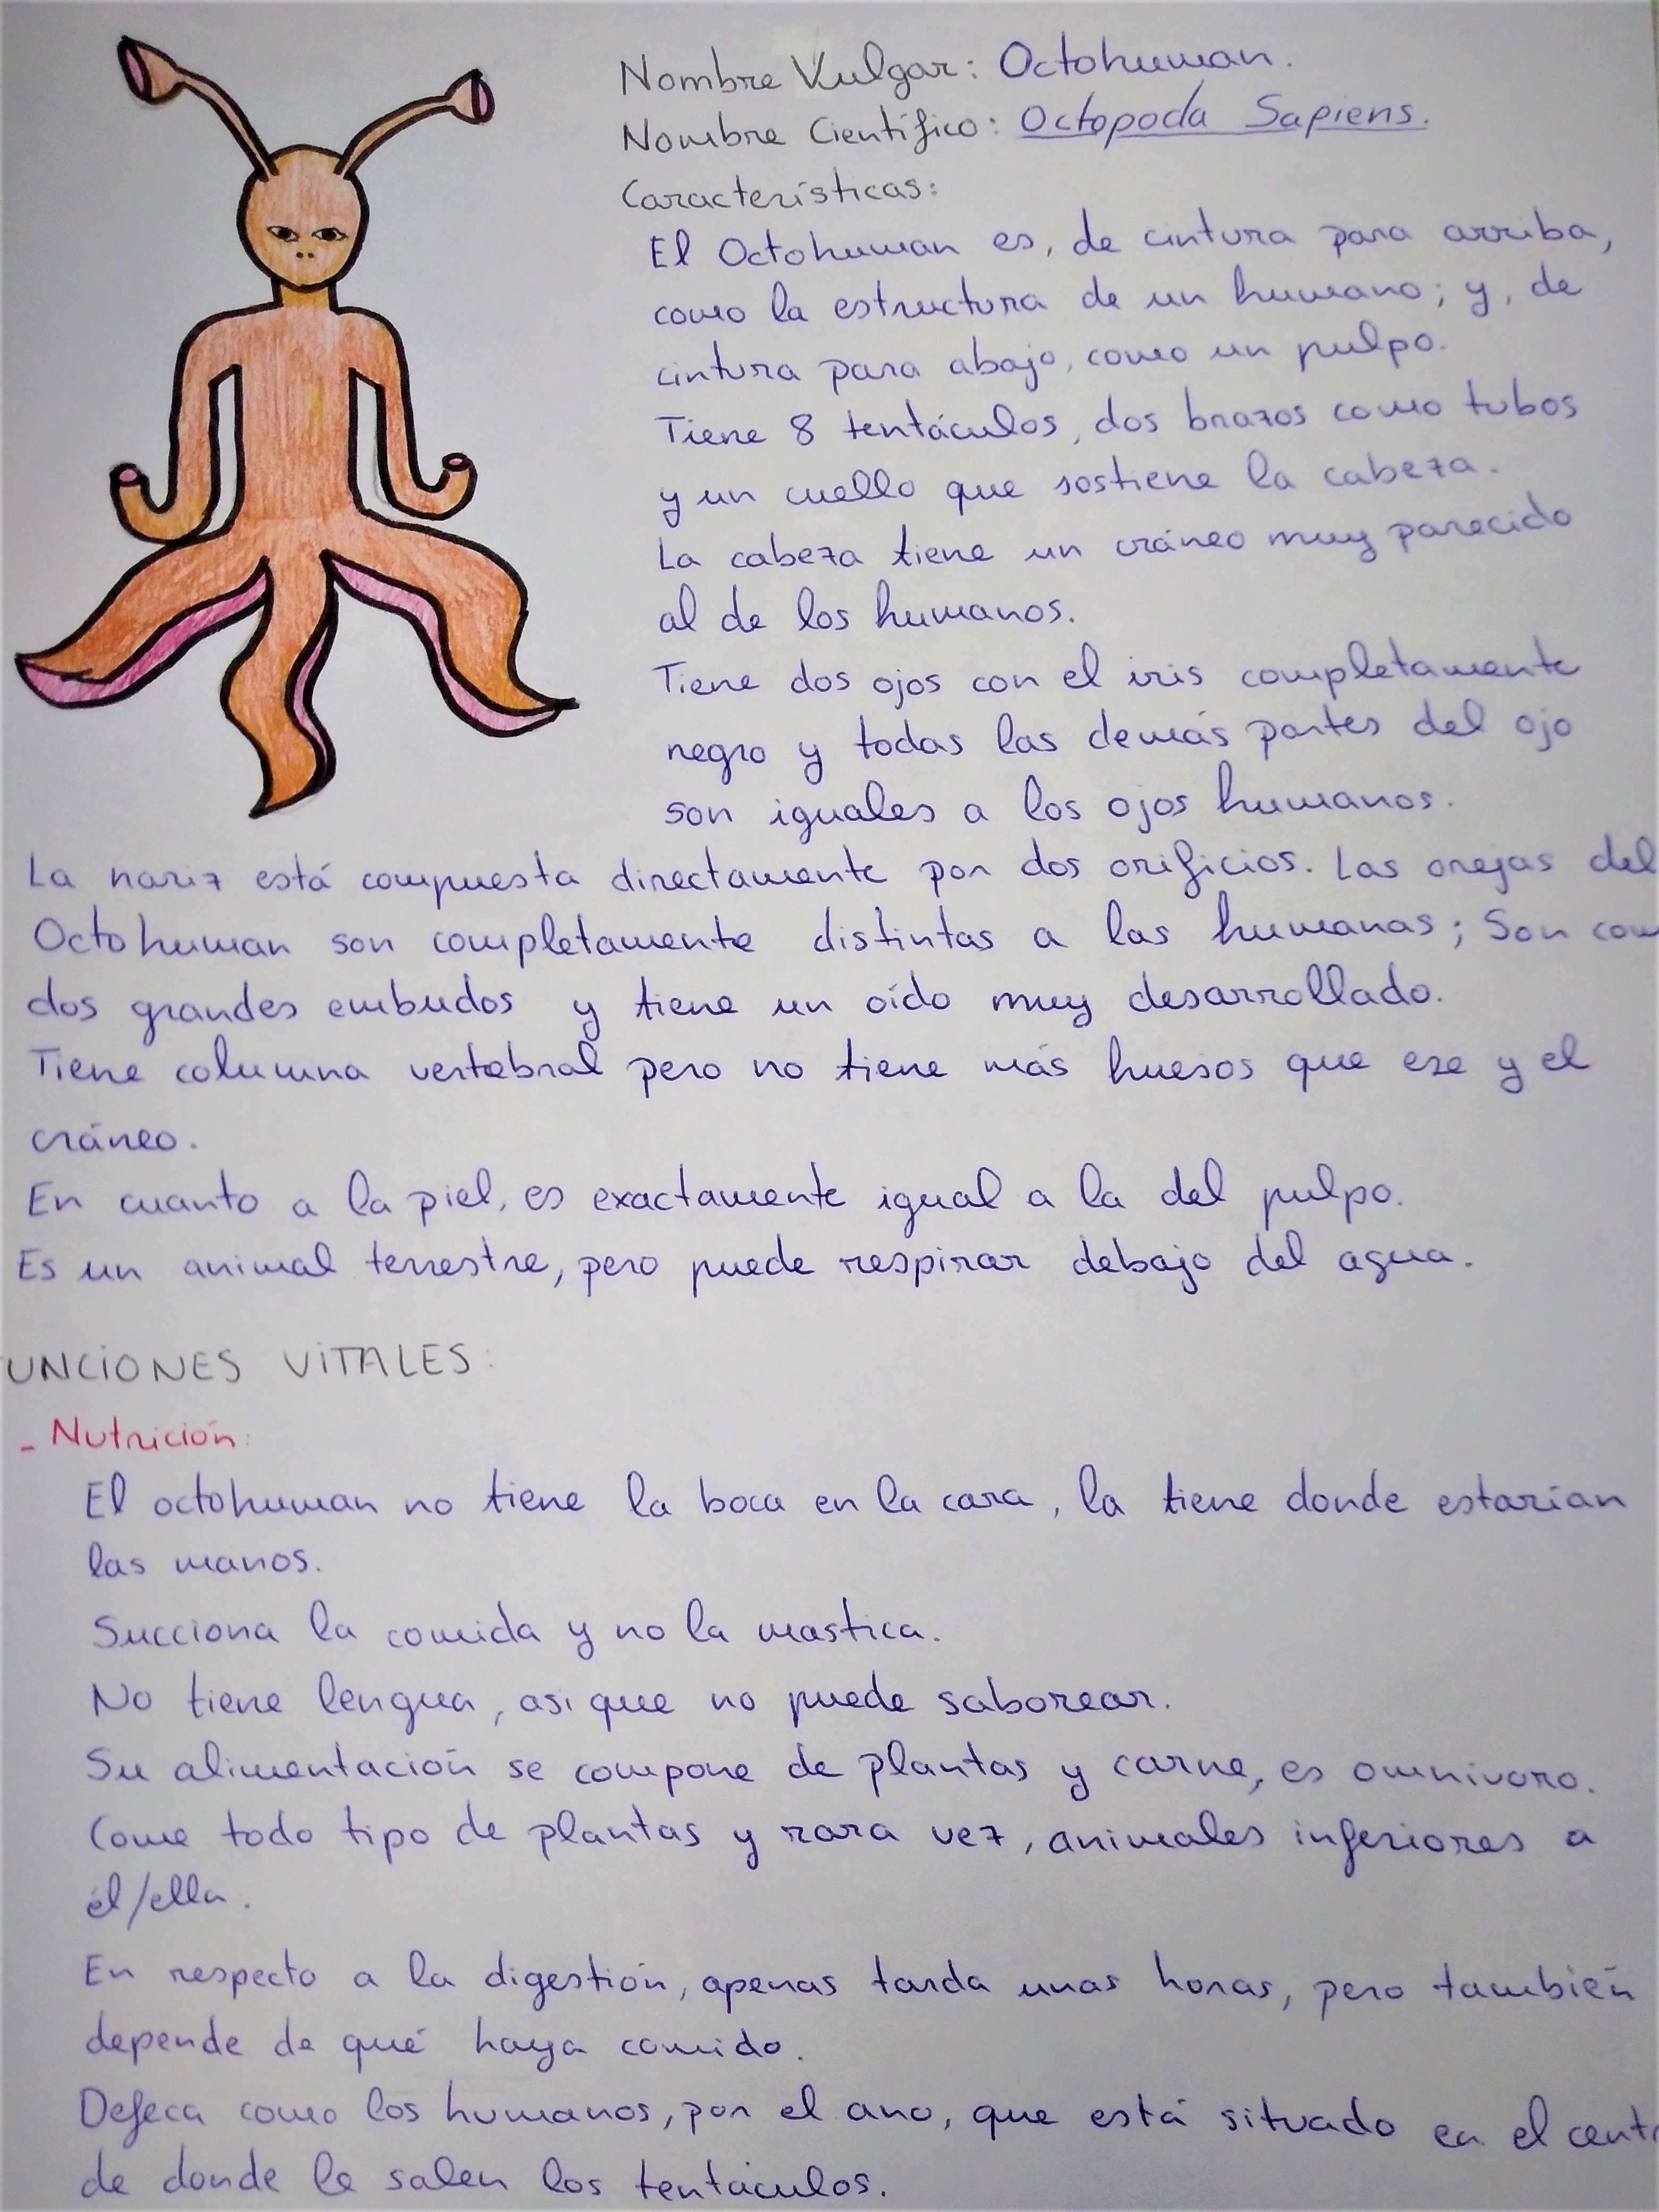 Nombre Vulgar: Octohuman.
Nombre Científico: Octopoda Sapiens.
Características:
El Octohuman es, de cintura para arriba,
como la estructura de un humano; y, de
cintura para abajo, como un pulpo.
Tiene 8 tentáculos, dos brazos como tubos
y un cuello que sostiene la cabeza.
La cabeza tiene un cráneo muy parecido
al de los humanos.
Tiene dos ojos con el iris completamente
negro y todas las demás partes del ojo
son iguales a los ojos humanos.
La nariz está compuesta directamente por dos orificios. Las orejas del
Octohuman son completamente distintas a las humanas; Son com
dos grandes embudos y tiene un oído muy desarrollado.
Tiene columna vertebral pero no tiene más huesos que ese y el
cráneo.
En cuanto a la piel, es exactamente igual a la del pulpo.
Es un animal terrestre, pero puede respirar debajo del agua.
UNCIONES VITALES:
- Nutrición:
El octohuman no tiene la boca en la cara, la tiene donde estarían
las manos.
Succiona la comida y no la mastica.
No tiene lengua, asi que no puede saborear.
Su alimentación se compone de plantas y carne, es omnívoro.
Come todo tipo de plantas y rara vez, animales inferiores a
él/ella.
En respecto a la digestión, apenas tarda unas horas, pero también
depende de qué haya comido.
Defeca como los humanos, por el ano, que está situado en el centr
de donde le salen los tentáculos.